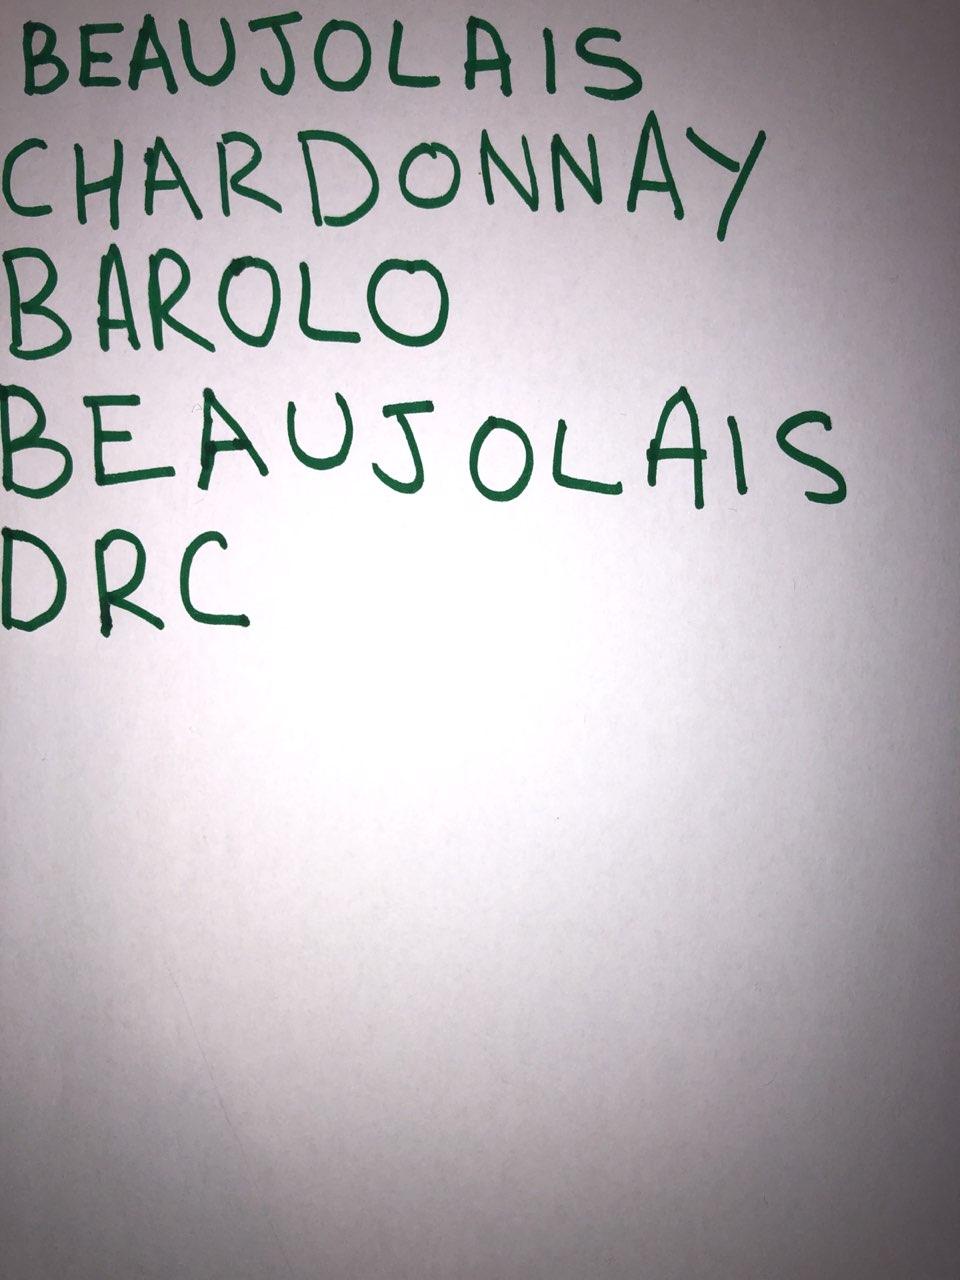 BEAUJOLAIS
CHARDONNAY
BAROLO
BEAUJOLAIS
DRC